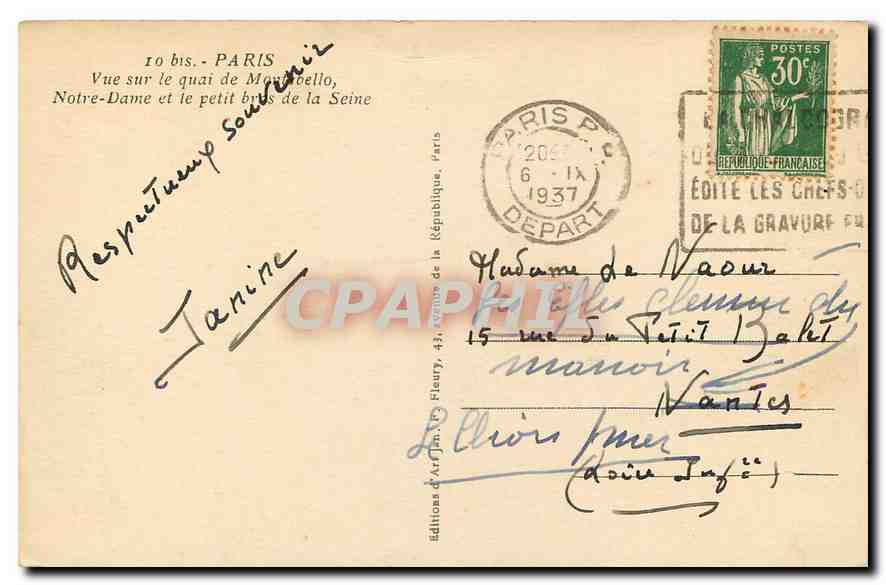 10 bis. - PARIS
Vue sur le quai de Montebello,
Notre-Dame et le petit bras de la Seine
Respectueux souvenir
Janine
Editions d'Art Jan. F. Fleury, 43, avenue de la République, Paris
POSTES
30c
REPUBLIQUE FRANÇAISE
PARIS P.
20
6 - IX
1937
DEPART
EDITE LES CHEFS-D
DE LA GRAVURE FR
Madame de Naour
15 rue du Petit
Nantes
(Loire Infre)
du
manoir
CPAPHIL